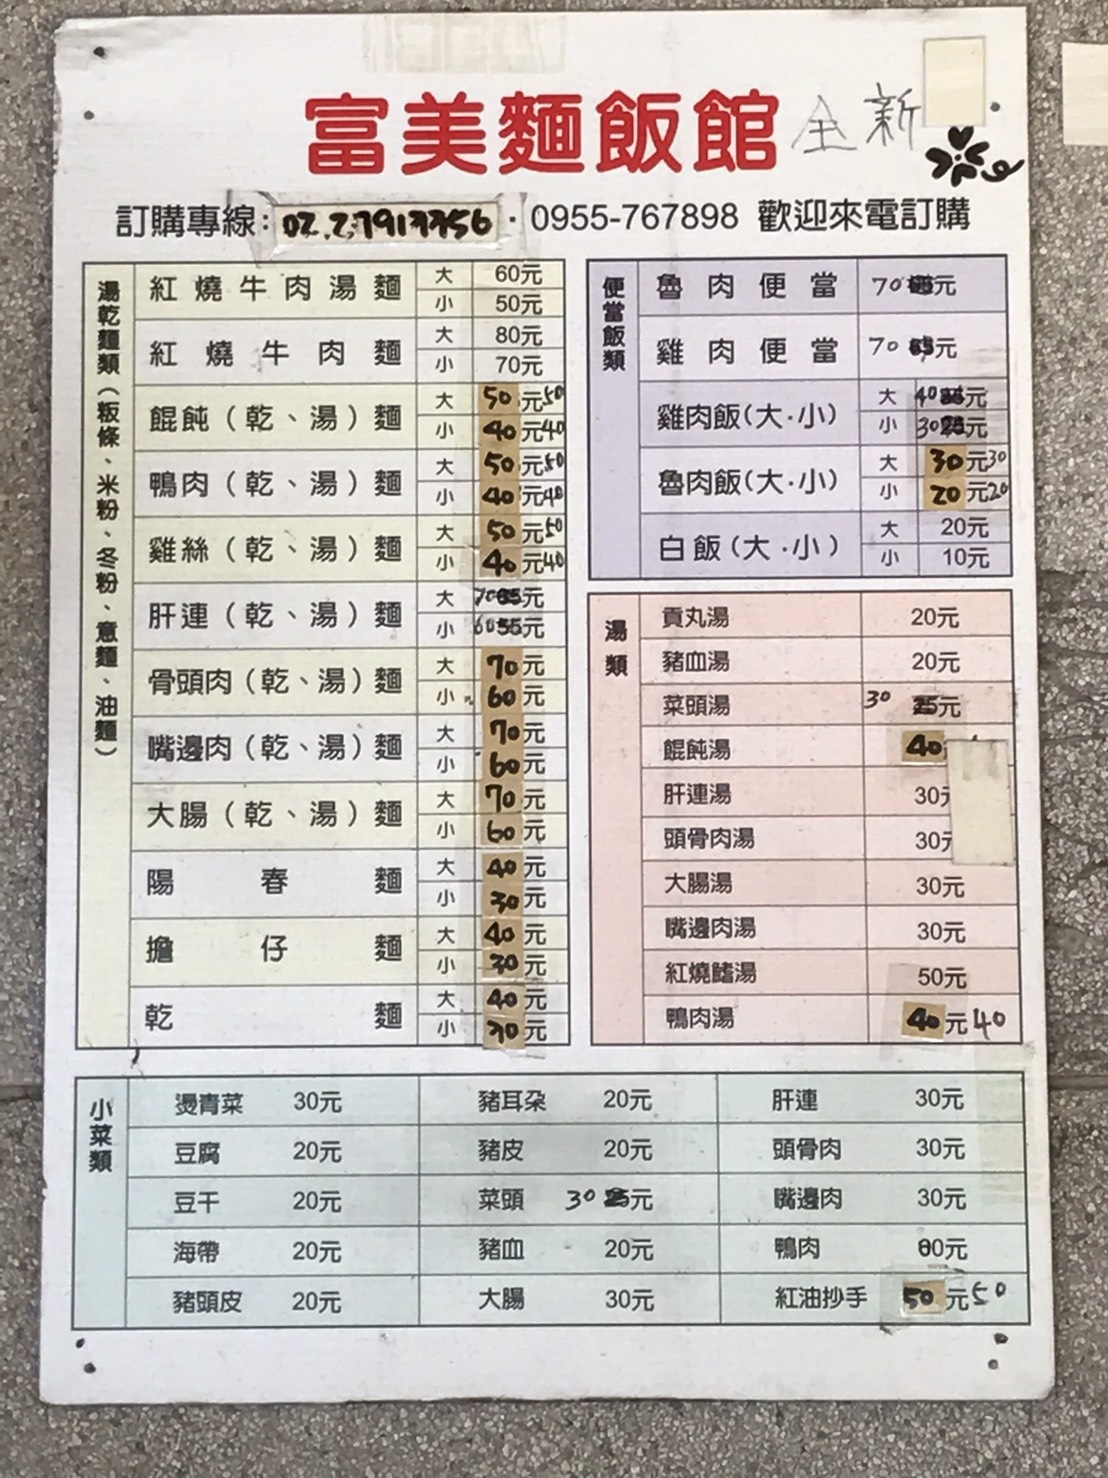 富美麵飯館 全新
訂購專線: 02.27913356 · 0955-767898 歡迎來電訂購
湯乾麵類（粄條、米粉、冬粉、意麵、油麵）
紅燒牛肉湯麵 大 60元
小 50元
紅燒牛肉麵 大 80元
小 70元
餛飩（乾、湯）麵 大 50元50
小 40元40
鴨肉（乾、湯）麵 大 50元50
小 40元40
雞絲（乾、湯）麵 大 50元50
小 40元40
肝連（乾、湯）麵 大 7065元
小 6055元
骨頭肉（乾、湯）麵 大 70元
小 60元
嘴邊肉（乾、湯）麵 大 70元
小 60元
大腸（乾、湯）麵 大 70元
小 60元
陽春麵 大 40元
小 30元
擔仔麵 大 40元
小 30元
乾麵 大 40元
小 30元
便當飯類
魯肉便當 70元
雞肉便當 70 65元
雞肉飯(大·小) 大 40元
小 3025元
魯肉飯(大·小) 大 30元30
小 20元20
白飯(大·小) 大 20元
小 10元
湯類
貢丸湯 20元
豬血湯 20元
菜頭湯 30 25元
餛飩湯 40
肝連湯 30元
頭骨肉湯 30元
大腸湯 30元
嘴邊肉湯 30元
紅燒鰭湯 50元
鴨肉湯 40元40
小菜類
燙青菜 30元 豬耳朵 20元 肝連 30元
豆腐 20元 豬皮 20元 頭骨肉 30元
豆干 20元 菜頭 30 25元 嘴邊肉 30元
海帶 20元 豬血 20元 鴨肉 60元
豬頭皮 20元 大腸 30元 紅油抄手 50元50